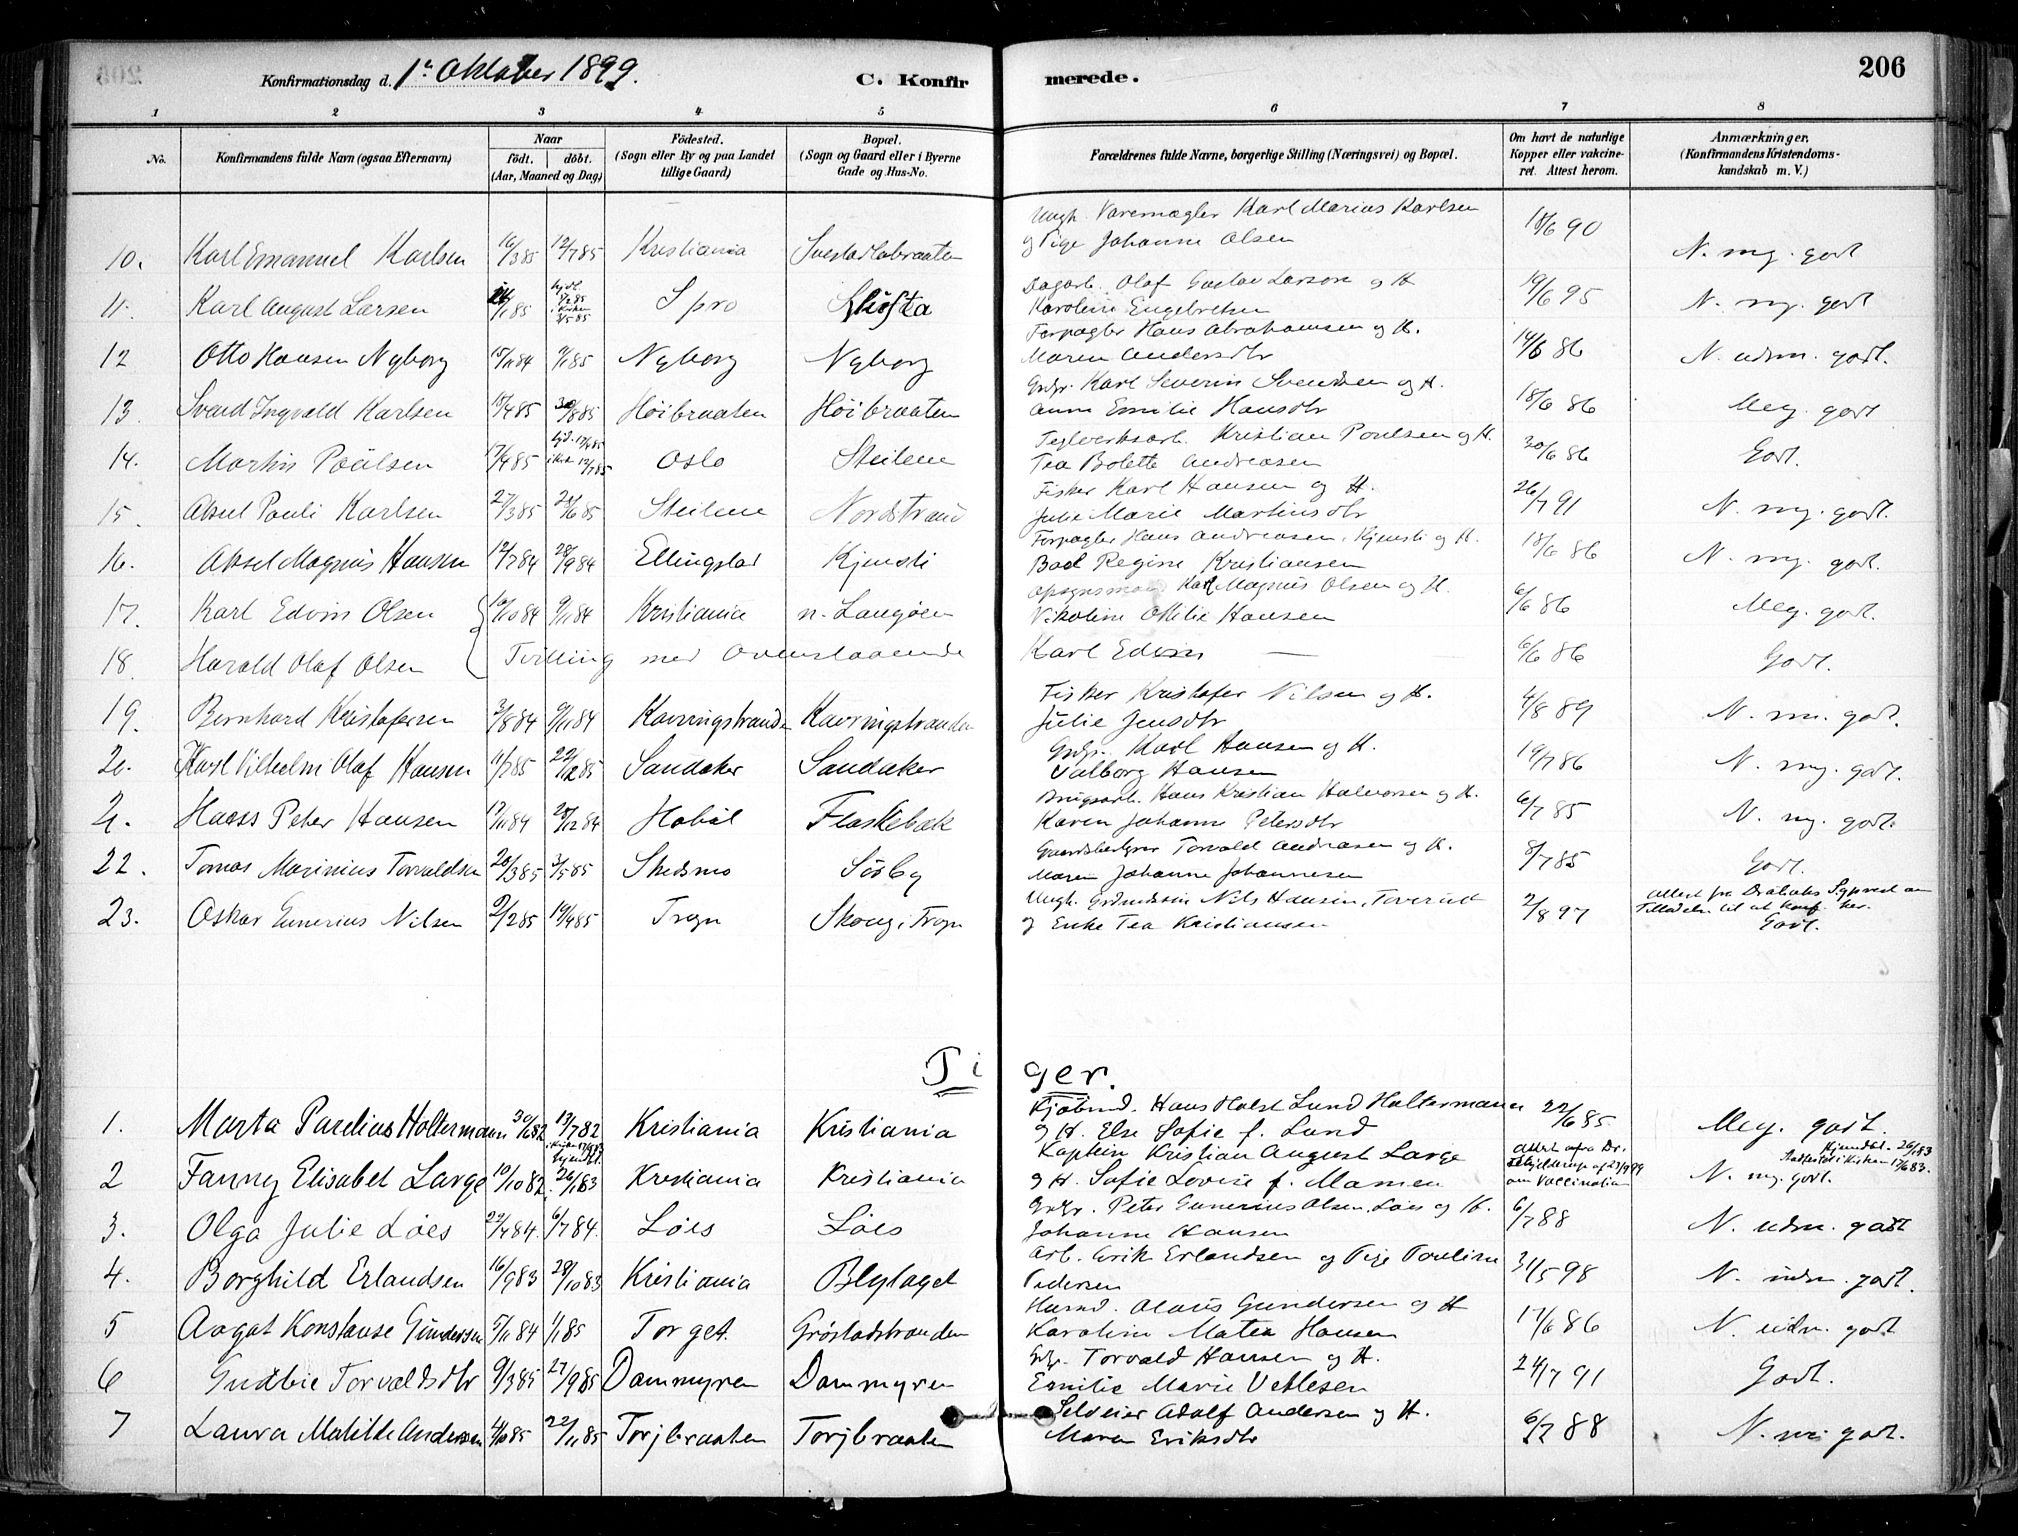 Konfirmationsdag d. 1ste Oktober 1899.
C. Konfirmerede.
206
1 2 3 4 5 6 7 8
No.
Konfirmandens fulde Navn (ogsaa Efternavn)
Naar
födt. döbt.
(Aar, Maaned og Dag)
Födested.
(Sogn eller By og paa Landet
tillige Gaard)
Bopæl.
(Sogn og Gaard eller i Byerne
Gade og Hus-No.
Forældrenes fulde Navne, borgerlige Stilling (Næringsvei) og Bopæl.
Om havt de naturlige
Kopper eller vakcine-
ret. Attest herom.
Anmærkninger.
(Konfirmandens Kristendoms-
kundskab m. V.)
Ungk. Varemægler Karl Marius Karlsen
10. Karl Emanuel Karlsen 16/3 85 12/7 85 Kristiania Svestadbraaten og Pige Johanne Olsen 18/6 90 N. mg. godt
Dagarb. Olaf Gustav Larsen og H
11. Karl August Larsen Spro Skøfta Karoline Engebretsen 19/6 95 N. mg. godt
Forpagter Hans Abrahamsen og H.
12 Otto Hansen Nyborg 15/11 84 9/1 85 Nyborg Nyborg Maren Andersdtr 14/6 86 N. udm. godt.
Grdbr. Karl Severin Svendsen og H.
13 Svend Ingvald Karlsen 15/4 85 30/8 85 Høibraaten Høibraaten Anne Emilie Hansdtr 18/6 86 Meg. godt
Teglverksarb. Kristian Poulsen og H.
14. Martin Poulsen 17/4 85 Oslo Steilene Tea Bolette Andreasen 30/6 86 Godt.
Fisker Karl Hansen og H.
15. Aksel Pauli Karlsen 27/3 85 21/6 85 Steilene Nordstrand Julie Marie Martinsdtr 26/7 91 N. mg. godt.
Forpagter Hans Andreasen, Kjemsli og H.
16. Aksel Magnus Hansen 12/7 84 28/9 84 Ellingstad Kjemsli Regine Kristiansen 18/6 86 N. mg. godt.
Opsynsmand Karl Magnus Olsen og H.
17. Karl Edvin Olsen 19/10 84 9/11 84 Kristiania n. Langøen Nikoline Otilie Hansen 6/6 86 Meg. godt.
18. Harald Olaf Olsen Tvilling med Ovenstaaende Karl Edvin — 6/6 86 Godt.
Fisker Kristofer Nilsen og H.
19. Bernhard Kristofersen 3/8 84 9/11 84 Kavringstranden Kavringstranden Julie Jensdtr 4/8 89 N. mg. godt.
Grdbr. Karl Hansen og H.
20. Karl Vilhelm Olaf Hansen 11/7 85 22/12 85 Sandaker Sandaker Valborg Hansen 19/7 86 N. mg. godt.
Brugsarb. Hans Kristian Halvorsen og H.
21. Hans Peter Hansen 17/11 84 28/12 84 Hobøl Flaskebæk Karen Johanne Petersdtr 6/7 85 N. mg. godt.
Gaardsbestyrer Torvald Andreasen og H.
22. Tomas Marinius Torvaldsen 20/3 85 3/5 85 Skedsmo Sørby Maren Johanne Johannesen 8/7 85 Godt.
Ungk. Grdmdssøn Nils Hansen, Toverud Attest fra Drøbaks Sgprest om
23. Oskar Gunerius Nilsen 2/2 85 19/4 85 Frogn Skoug i Frogn og Enke Tea Kristiansen 2/8 97 Tilladelse til at konf. her. Godt.
Piger.
Kjøbmd. Hans Holst Lund Holtermann
1. Marta Parelius Holtermann 30/1 82 17/7 82 Kristiania Kristiania og H. Else Sofie f. Lund 22/6 85 Meg. godt.
Kaptein Kristian August Lorge Attest fra Dr. Hjemdbt. 26/1 83
2 Fanny Elisabet Lorge 10/10 82 26/1 83 Kristiania Kristiania og H. Sofie Lovise f. Mamen om Vaccination N. mg. godt.
Grdbr. Peter Gunerius Olsen, Løes og H.
3. Olga Julie Løes 29/4 84 6/7 84 Løes Løes Johanne Hansen 6/7 88 N. udm. godt
Arb. Erik Erlandsen og Pige Pouline
4. Borghild Erlandsen 16/9 83 28/10 83 Kristiania Blylaget Pedersen 31/5 98 N. udm. godt
Husmd. Olaus Gundersen og H
5 Aagot Konstanse Gundersen 5/11 84 1/1 85 Torget Grøstadstranden Karoline Matea Hansen 17/6 86 N. udm. godt
Grdbr. Torvald Hansen og H.
6 Gudbie Torvaldsdtr 9/3 85 27/9 85 Dammyren Dammyren Emilie Marie Vetlesen 24/7 91 Godt.
Selveier Adolf Andersen og H.
7 Laura Matilde Andersen 4/10 85 22/11 85 Torjbraaten Torjbraaten Maren Eriksdtr 6/7 88 N. mg. godt.